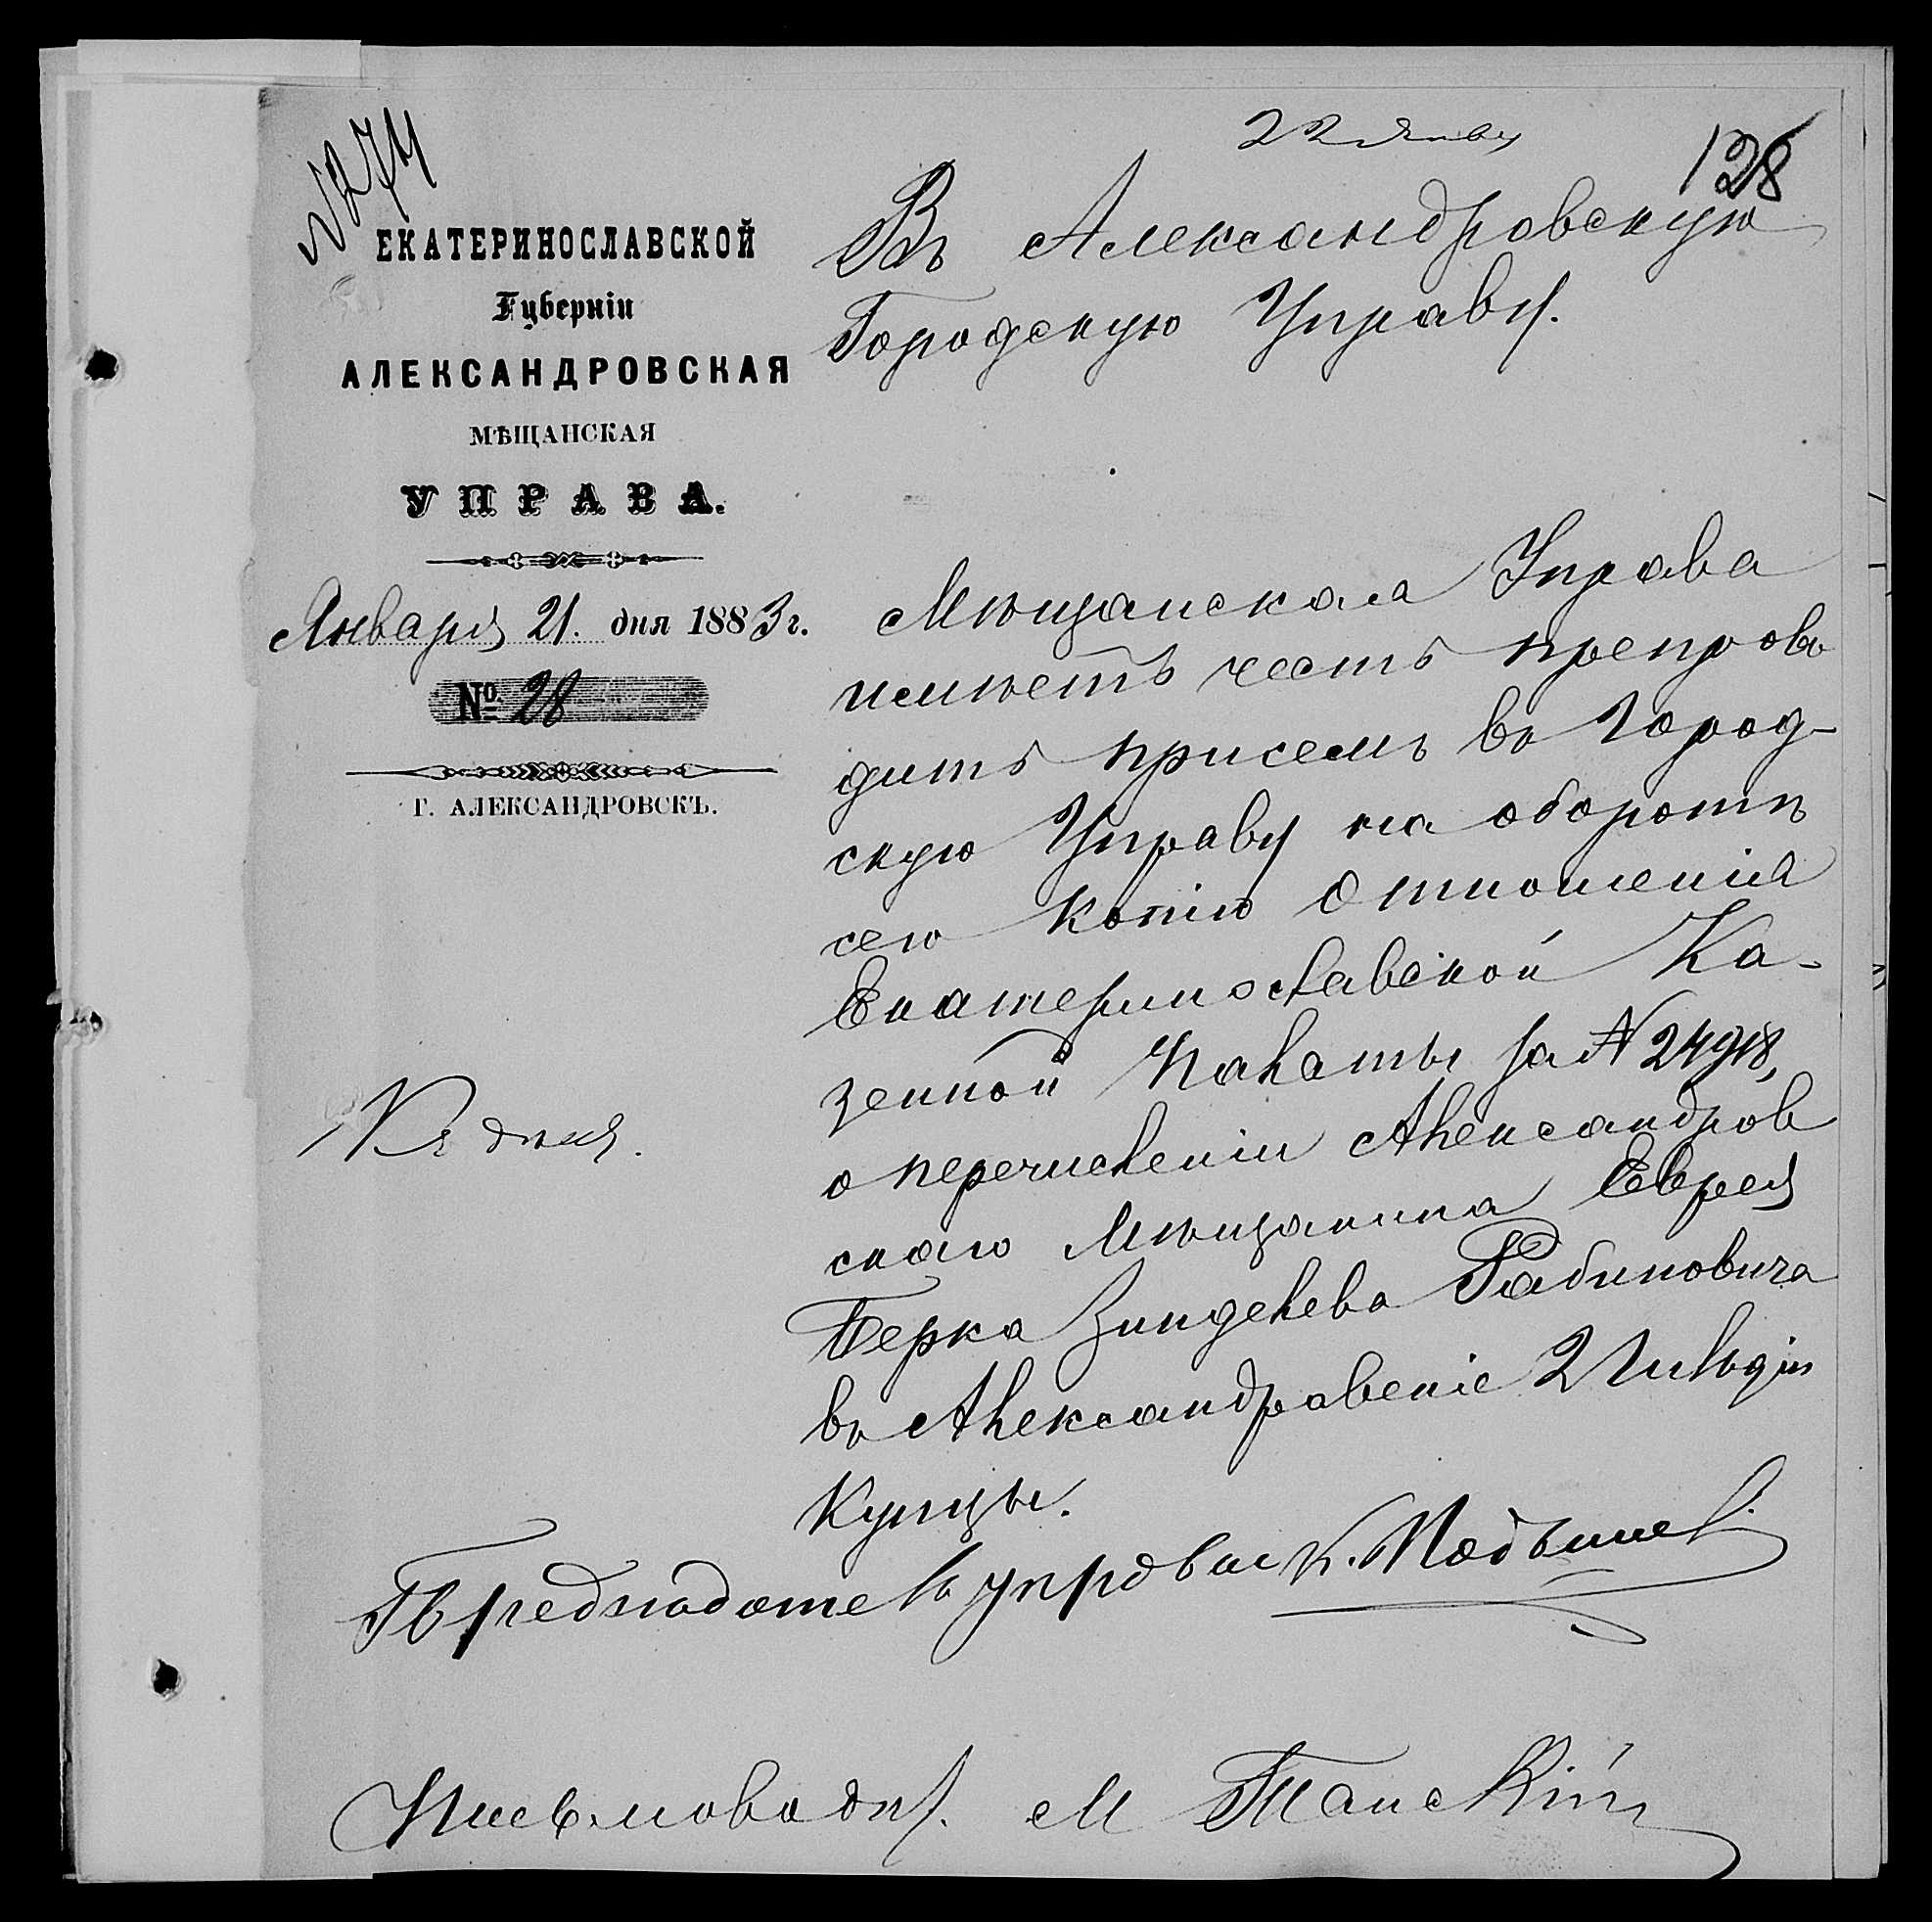 № 274
22 Янвр
128
ЕКАТЕРИНОСЛАВСКОЙ
Губерніи
АЛЕКСАНДРОВСКАЯ
МѢЩАНСКАЯ
УПРАВА.
Января 21. дня 1883 г.
№ 28
Г. АЛЕКСАНДРОВСКЪ.
Въ Александровскую
Городскую Управу.
Мѣщанская Управа
имѣетъ честь препрово
дить присемъ въ Город-
скую Управу на оборотѣ
сего копію отношенія
Екатеринославской Ка-
зенной Палаты за № 24918,
о перечисленіи Александров
скаго Мѣщанина Еврея
Берка Зинделева Рабиновича
въ Александровскіе 2 Гильдіи
Купцы.
Къ дѣлу.
Письмовод. М Танскій